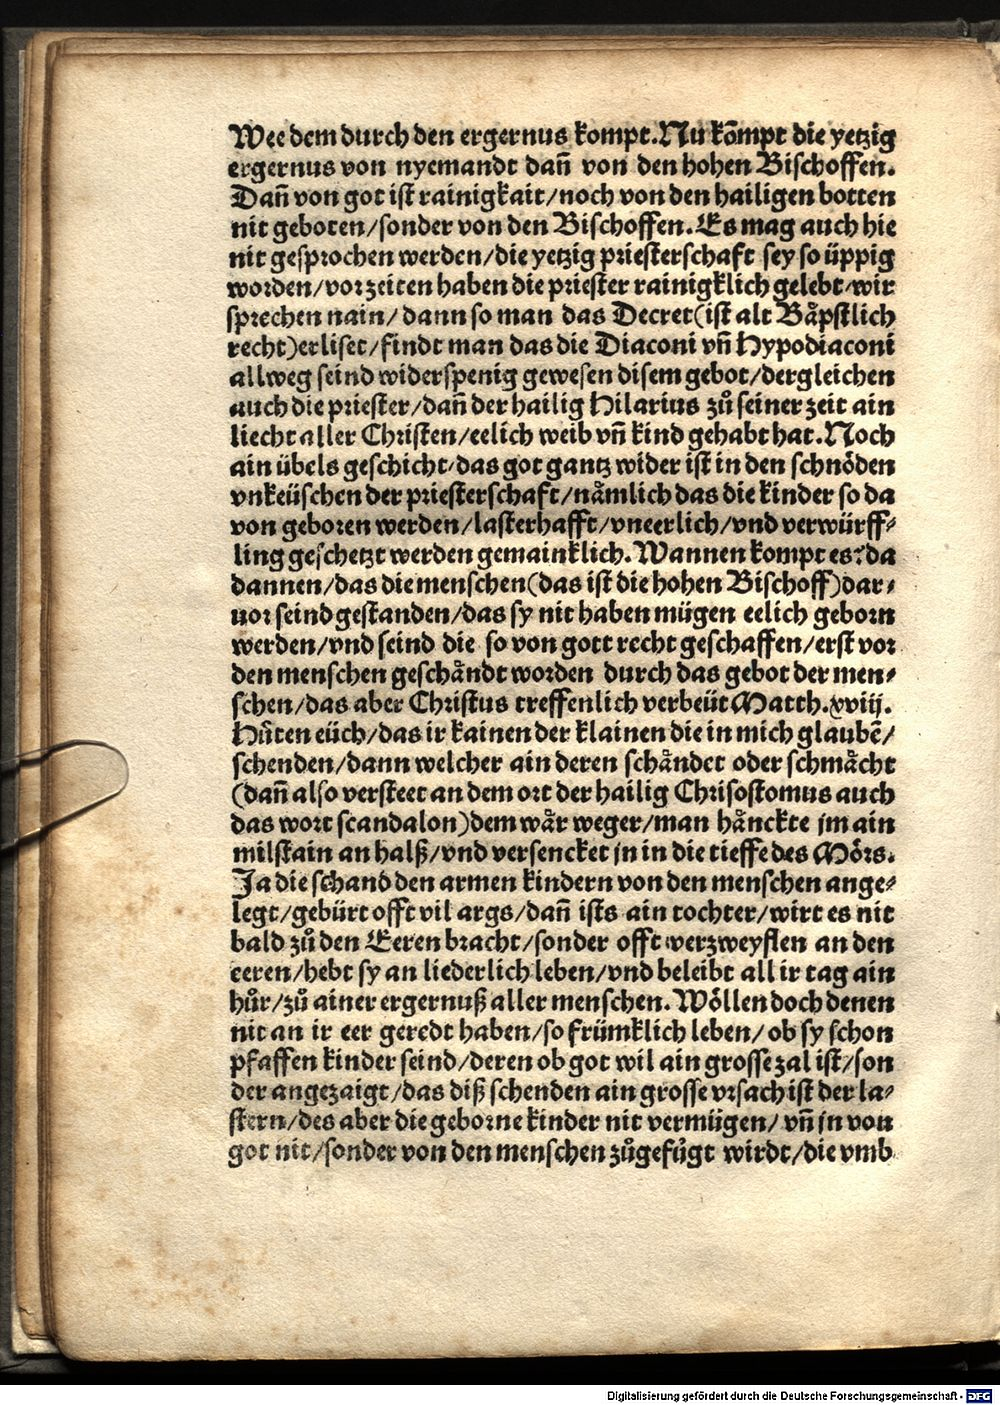 Wee dem durch den ergernus kompt. Nu kõmpt die yetzig
ergernus von nyemandt dañ von den hohen Bischoffen.
Dañ von got ist rainigkait/noch von den hailigen botten
nit geboten/sonder von den Bischoffen. Es mag auch hie
nit gesprochen werden/die yetzig priesterschaft sey so üppig
worden/vor zeiten haben die priester rainigklich gelebt/wir
sprechen nain/dann so man das Decret(ist alt Båpstlich
recht)erliset/findt man das die Diaconi vñ Hypodiaconi
allweg seind widerspenig gewesen disem gebot/dergleichen
auch die priester/dañ der hailig Hilarius zů seiner zeit ain
liecht aller Christen/eelich weib vñ kind gehabt hat. Noch
ain übels geschicht/das got gantz wider ist in den schnöden
vnkeüschen der priesterschaft/nåmlich das die kinder so da
von geboren werden/lasterhafft/vneerlich/vnd verwürff⸗
ling geschetzt werden gemainklich. Wannen kompt es? da
dannen/das die menschen(das ist die hohen Bischoff)dar⸗
uor seind gestanden/das sy nit haben mügen eelich geborn
werden/vnd seind die so von gott recht geschaffen/erst vor
den menschen geschåndt worden durch das gebot der men⸗
schen/das aber Christus treffenlich verbeüt Matth. xviij.
Hůten eüch/das ir kainen der klainen die in mich glaubẽ/
schenden/dann welcher ain deren schåndet oder schmåcht
(dañ also versteet an dem ort der hailig Chrisostomus auch
das wort scandalon)dem wår weger/man hånckte jm ain
milstain an halß/vnd versencket jn in die tieffe des Mörs.
Ja die schand den armen kindern von den menschen ange⸗
legt/gebürt offt vil args/dañ ists ain tochter/wirt es nit
bald zů den Eeren bracht/sonder offt verzweyflen an den
eeren/hebt sy an liederlich leben/vnd beleibt all ir tag ain
hůr/zů ainer ergernuß aller menschen. Wöllen doch denen
nit an ir eer geredt haben/so frümklich leben/ob sy schon
pfaffen kinder seind/deren ob got wil ain grosse zal ist/son
der angezaigt/das diß schenden ain grosse vrsach ist der la⸗
stern/des aber die geborne kinder nit vermügen/vñ jn von
got nit/sonder von den menschen zůgefůgt wirdt/die vmb
Digitalisierung gefördert durch die Deutsche Forschungsgemeinschaft - DFG